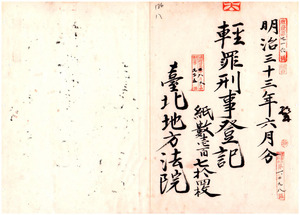 明治三十三年六月分
輕罪刑事登記
紙數壹百七拾四枚
臺北地方法院